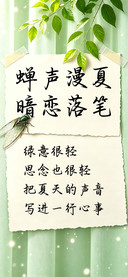 蝉声漫夏
暗恋落笔
绿意很轻
思念也很轻
把夏天的声音
写进一行心事